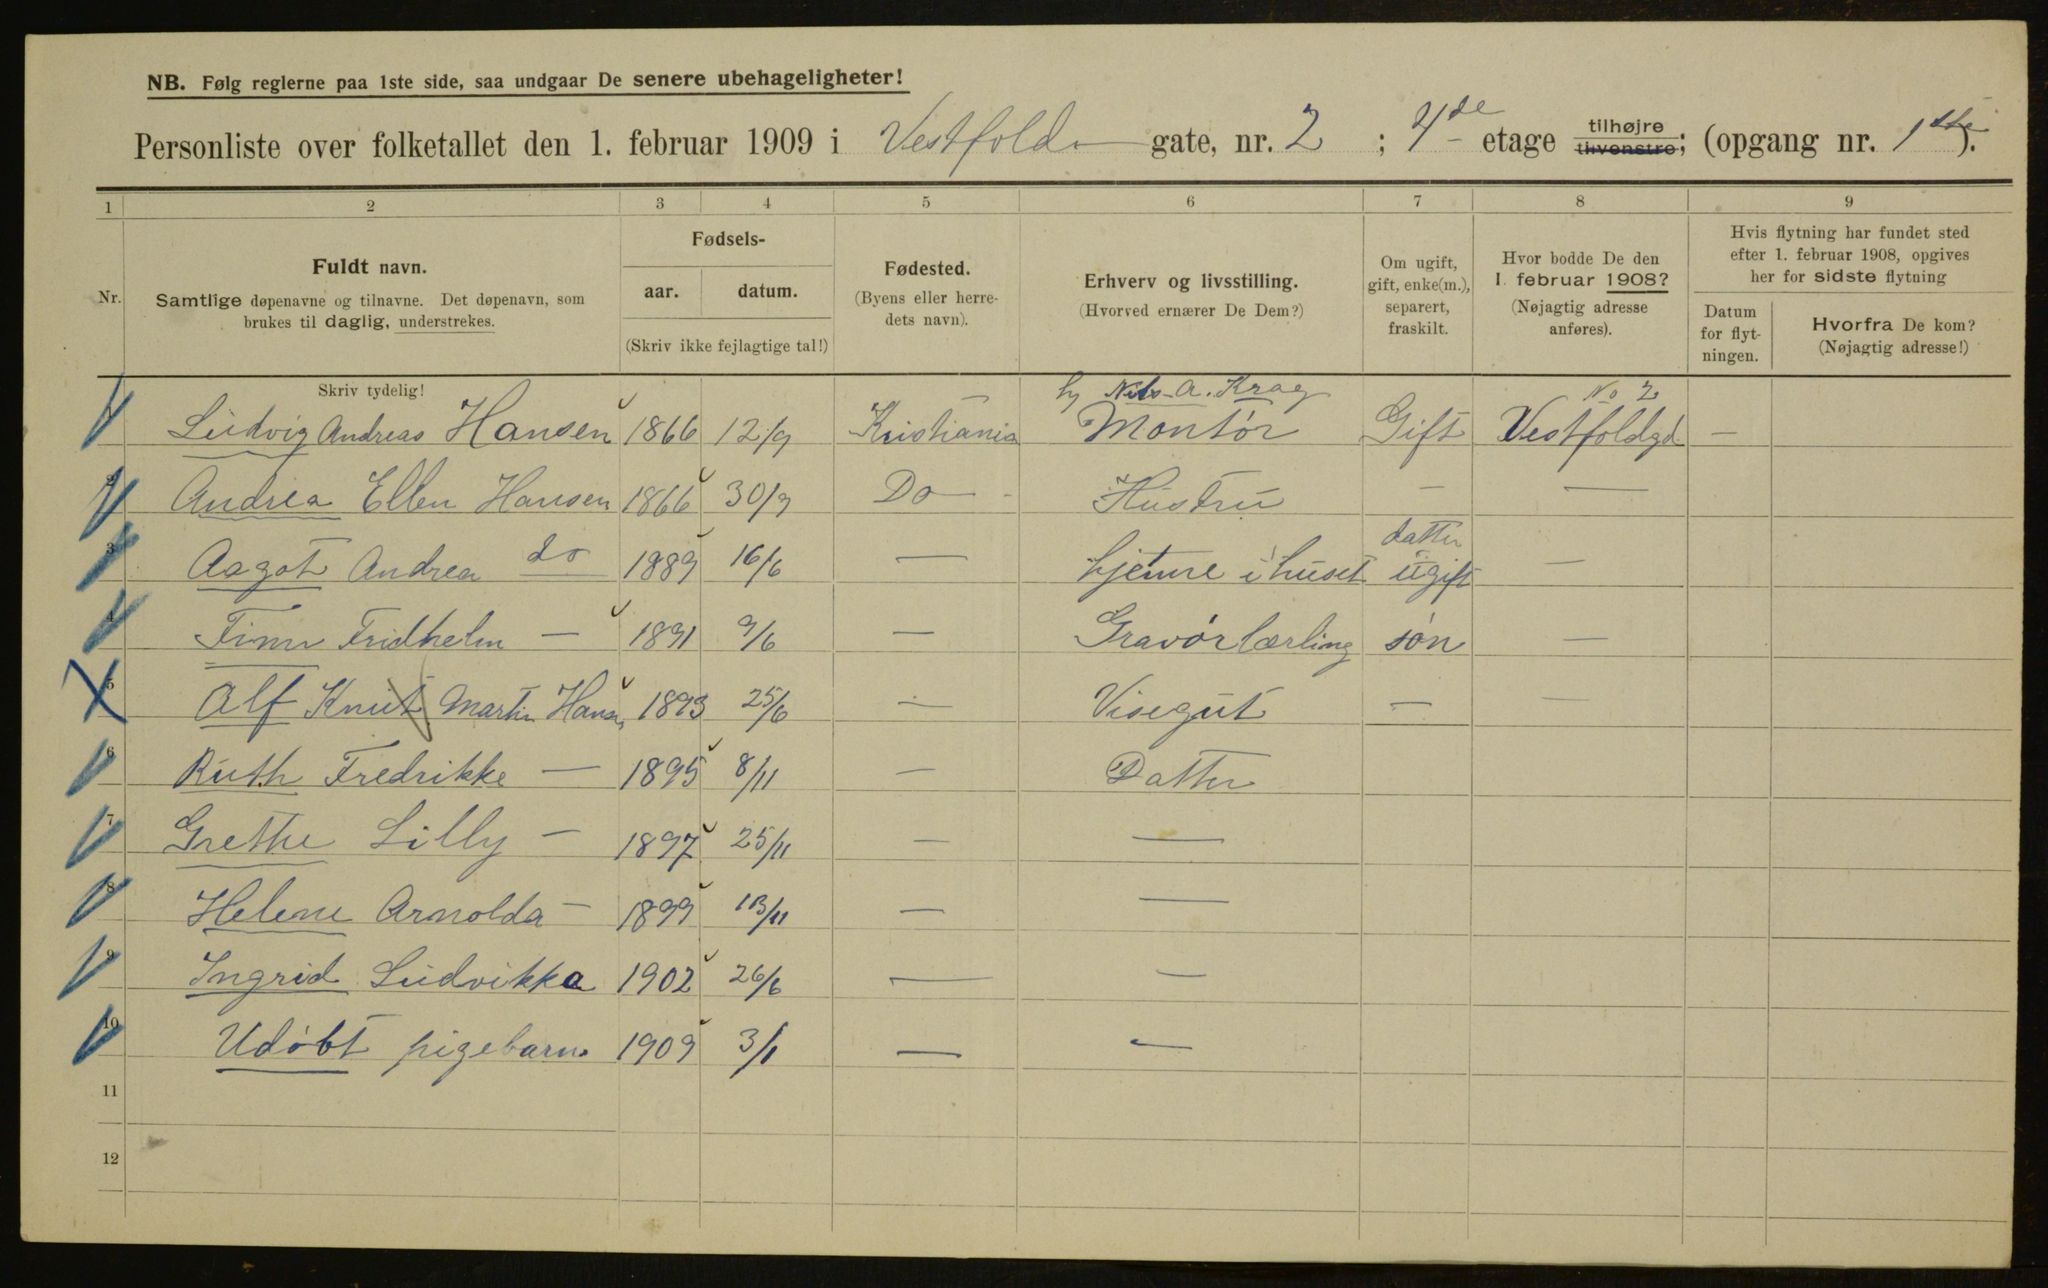 NB. Følg reglerne paa 1ste side, saa undgaar De senere ubehageligheter!
Personliste over folketallet den 1. februar 1909 i Vestfold gate, nr. 2 ; 4de etage tilhøjre tilvenstre; (opgang nr. 1ste).
1 2 3 4 5 6 7 8 9
Nr.
Fuldt navn.
Samtlige døpenavne og tilnavne. Det døpenavn, som
brukes til daglig, understrekes.
Fødsels-
aar. datum.
(Skriv ikke fejlagtige tal!)
Fødested.
(Byens eller herre-
dets navn).
Erhverv og livsstilling.
(Hvorved ernærer De Dem?)
Om ugift,
gift, enke(m.),
separert,
fraskilt.
Hvor bodde De den
1. februar 1908?
(Nøjagtig adresse
anføres).
Hvis flytning har fundet sted
efter 1. februar 1908, opgives
her for sidste flytning
Datum
for flyt-
ningen.
Hvorfra De kom?
(Nøjagtig adresse!)
Skriv tydelig!
A. Krag No 2
1 Ludvig Andreas Hansen 1866 12/9 Kristiania Montør Gift Vestfoldgd. —
2 Andrea Ellen Hansen 1866 30/9 Do — Hustru — —
datter
3 Aagot Andrea do 1889 16/6 — hjemme i huset ugift —
4 Finn Fridhelm — 1891 9/6 — Gravørlærling søn —
5 Alf Knut Martin Hansen 1893 25/6 — Visegut — —
6 Ruth Fredrikke — 1895 8/11 — Datter
7 Grethe Lilly — 1897 25/11 — —
8 Helene Arnolda — 1899 13/11 — —
9 Ingrid Ludvikka 1902 26/6 — —
10 Udøbt pigebarn 1909 3/1 — —
11
12